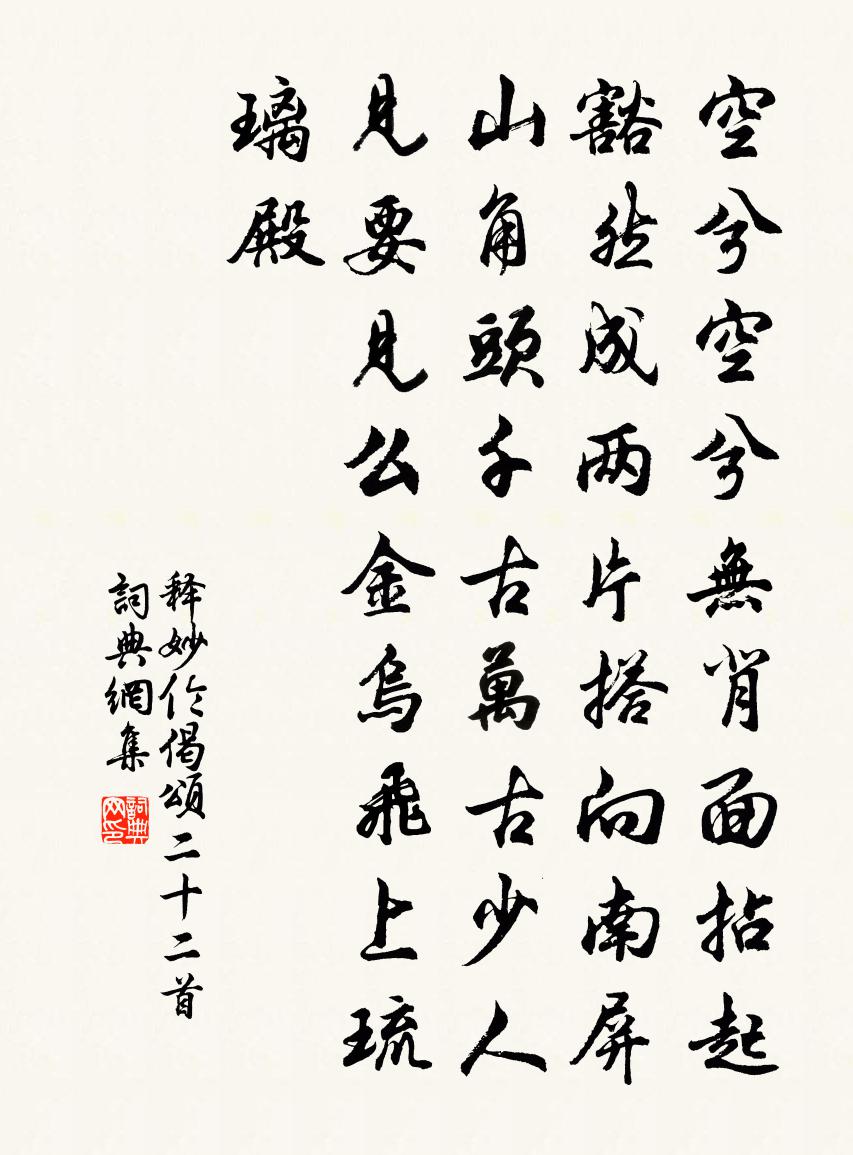 空兮空兮無背面拈起
豁然成两片搭向南屏
山角頭千古萬古少人
見要見么金烏飛上琉
璃殿
释妙伦偈頌二十二首
詞典網集
詞典网印